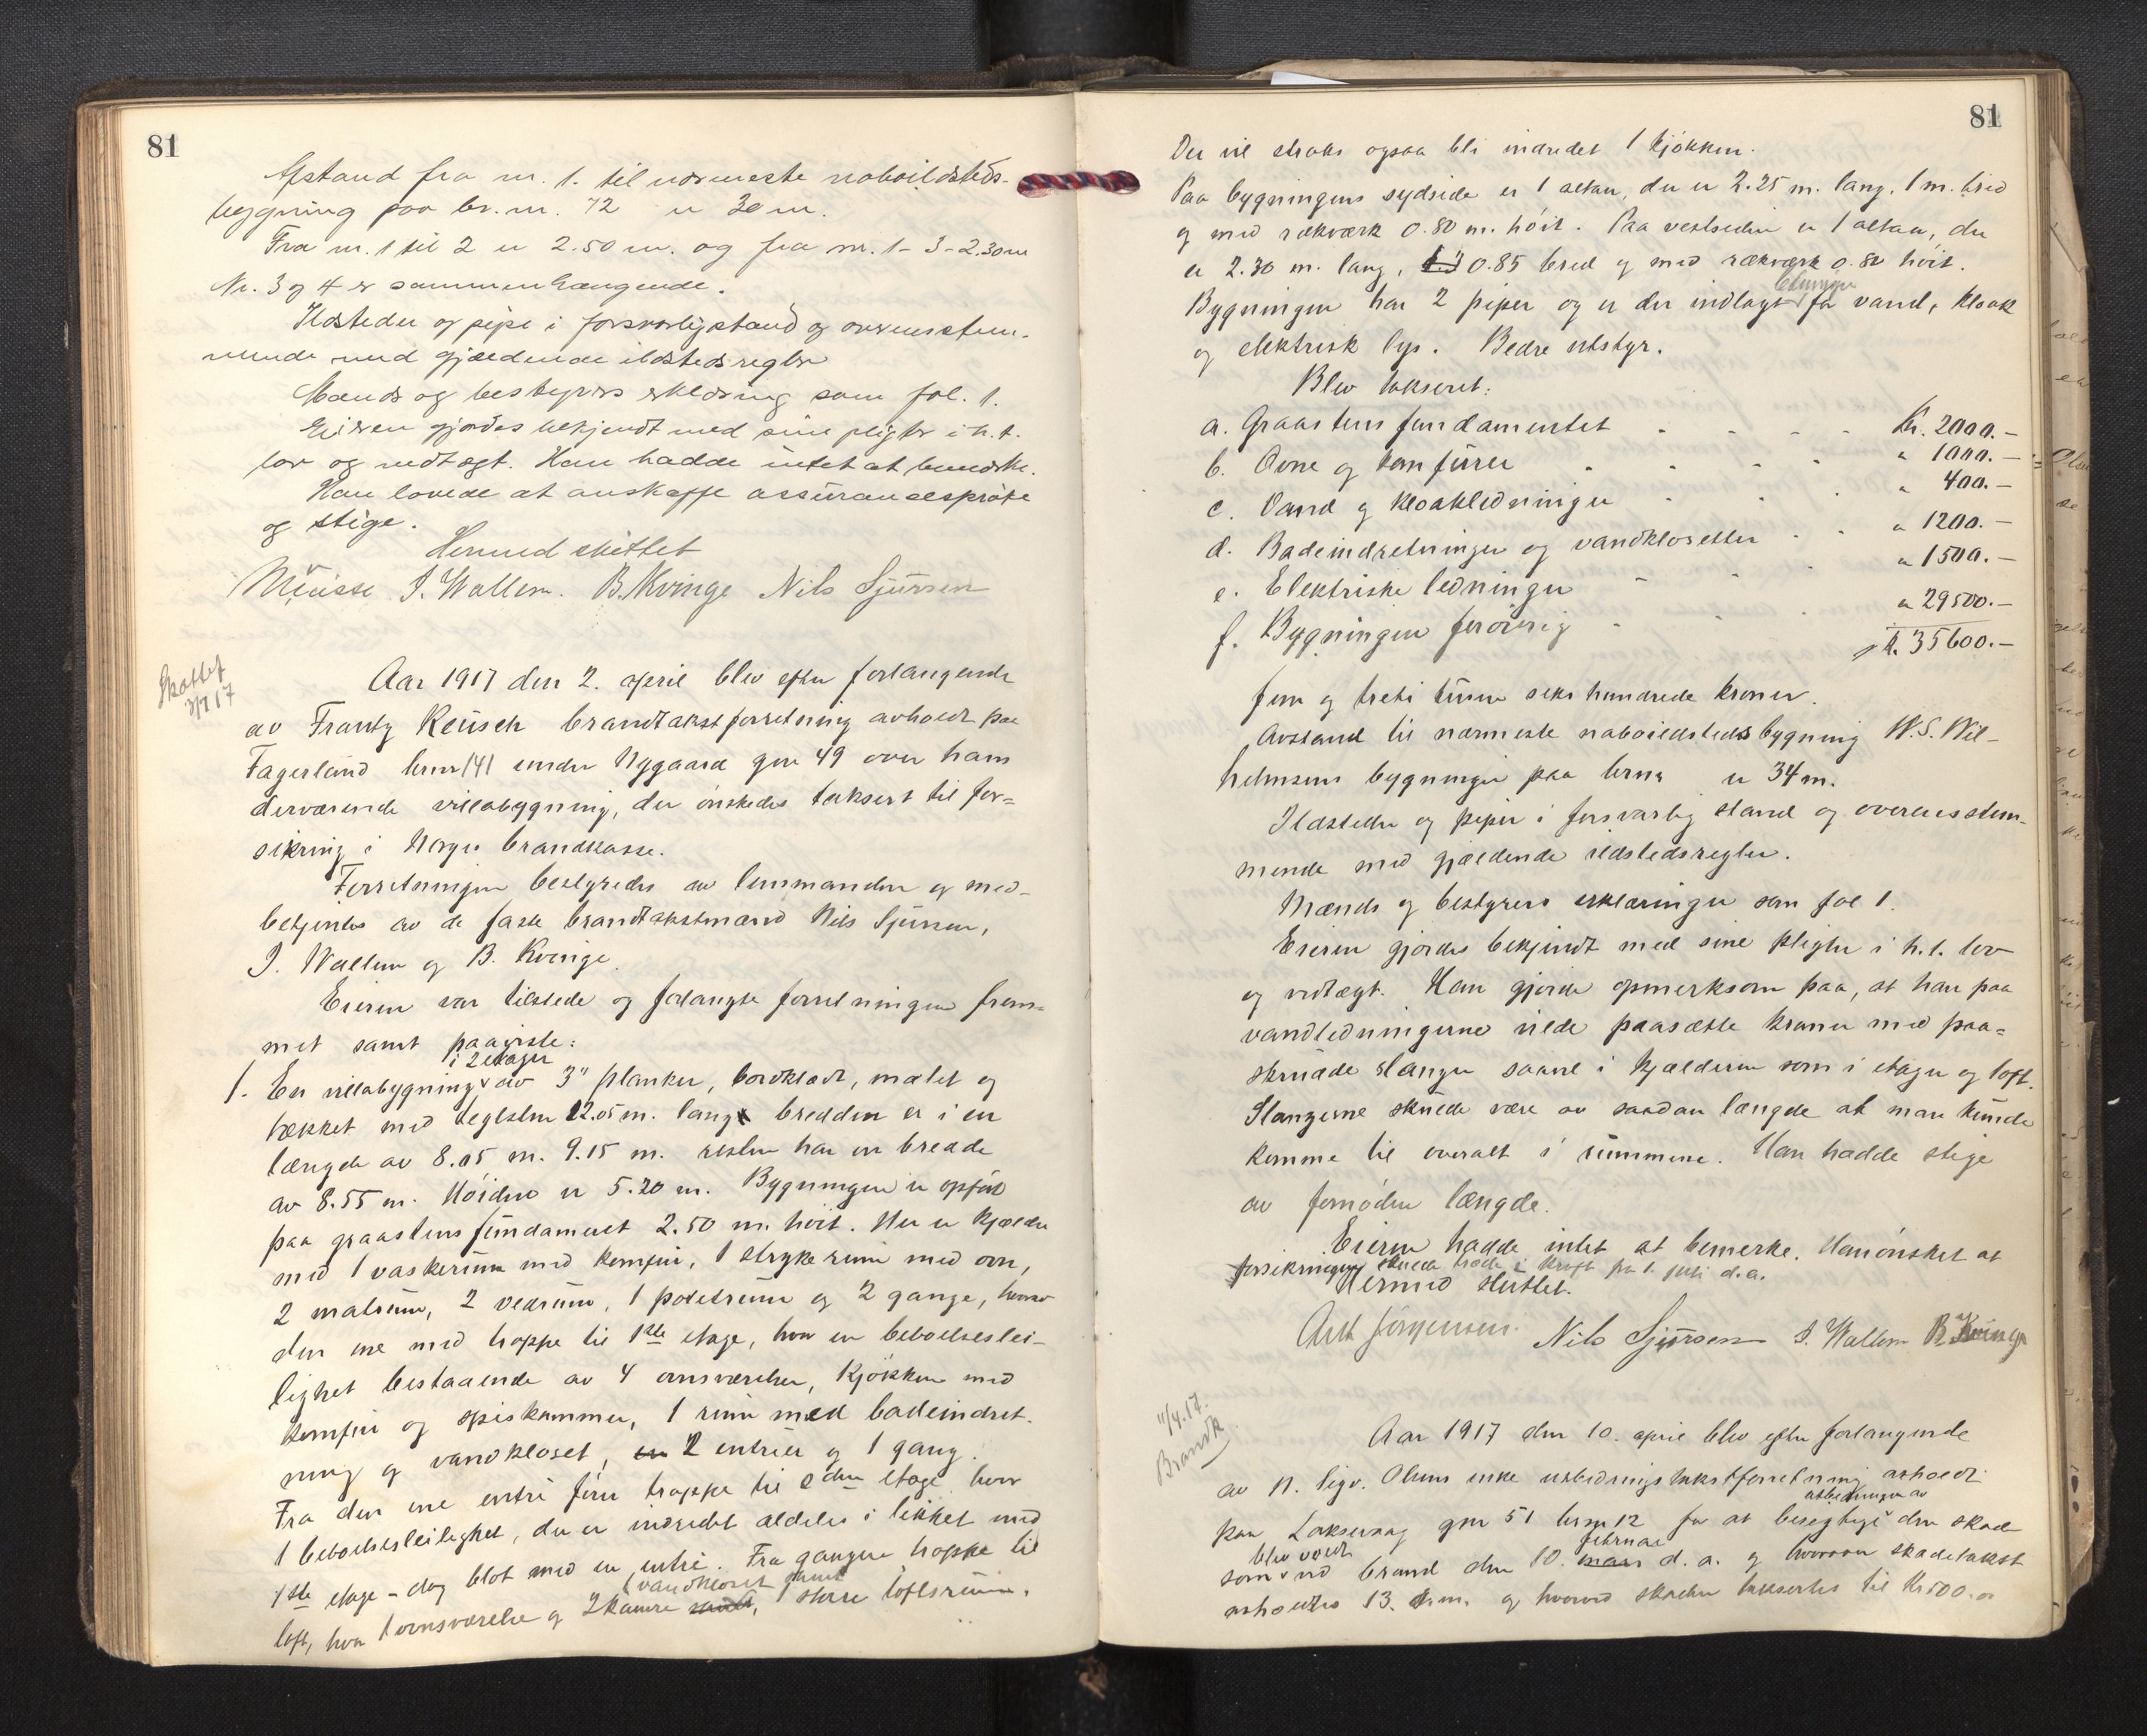 81
Afstand fra nr. 1. til nærmeste naboildsteds-
bygning paa br.nr. 72 er 30 m.
Fra nr. 1 til 2 er 2.50 m. og fra nr. 1 - 3 - 2.30 m
Nr. 3 og 4 er sammenhængende.
Ildsteder og pipe i forsvarlig stand og overensstem-
mende med gjældende ildstedsregler
Mænds og bestyrers erklæring som fol. 1.
Eieren gjordes bekjendt med sine pligter i h.t.
lov og vedtægt. Han hadde intet at bemerke.
Han lovede at anskaffe assurancesprøite
og stige.
Hermed sluttet
J. Wallem. B. Kvinge Nils Sjursen
17
Aar 1917 den 2. april blev efter forlangende
av Frantz Reusch brandtakstforretning avholdt paa
Fagerlund brnr 141 under Nygaard gnr 49 over hans
derværende villabygning, der ønskedes taksert til for=
sikring i Norges brandkasse.
Forretningen bestyredes av lensmanden og med-
betjentes av de faste brandtakstmænd Nils Sjursen,
J. Wallem og B. Kvinge.
Eieren var tilstede og forlangte forretningen frem-
met samt paaviste:
i 2 etager
1. En villabygning av 3" planker, bordklædt, malet og
tækket med teglsten 12.05 m. lang bredden er i en
længde av 8.05 m. 9.15 m. resten har en bredde
av 8.55 m. Høiden er 5.20 m. Bygningen er opført
paa graastens fundament 2.50 m. høit. Her er kjælder
med 1 vaskerum med komfur, 1 strykerum med ovn,
2 matrum, 2 vedrum, 1 potetrum og 2 gange, hvorav
den ene med trappe til 1ste etage, hvor en beboelseslei-
lighet bestaaende av 4 ovnsværelser, kjøkken med
komfur og spiskammer, 1 rum med badeindret-
ning og vandkloset, en 2 entréer og 1 gang.
Fra den ene entré fører trappe til 2den etage hvor
1 beboelsesleilighet, der er indredet aldeles i likhet med
1ste etage - dog blot med en entré. Fra gangen trappe til
1 vandkloset samt
loft, hvor 1 ovnsværelse og 2 kamre 1 større loftsrum.
81
Der vil straks ogsaa bli indredet 1 kjøkken.
Paa bygningens sydside er 1 altan, der er 2.25 m. lang. 1 m. bred
og med rækværk 0.80 m. høit. Paa vestsiden er 1 altan, der
er 2.30 m. lang, 0.85 bred og med rækværk 0.80 høit.
Bygningen har 2 piper og er der indlagt for vand, kloak
og elektrisk lys. Bedre utstyr.
Blev takseret:
a. Graastens fundamentet Kr. 2000.-
b. Ovne og komfurer " 1000.-
c. Vand og kloakledninger " 400.-
d. Badeindretninger og vandklosetter " 1200.-
e. Elektriske ledninger " 1500.-
f. Bygningen forøvrig " 29500.-
Kr. 35600.-
fem og treti tusen seks hundrede kroner.
Avstand til nærmeste naboildstedsbygning W.S. Wil-
helmsens bygninger paa brnr er 34 m.
Ildsteder og piper i forsvarlig stand og overensstem-
mende med gjældende ildstedsregler.
Mænds og bestyrers erklæringer som fol 1.
Eieren gjordes bekjendt med sine pligter i h.t. lov
og vedtægt. Han gjorde opmerksom paa, at han paa
vandledningerne vilde paasætte kraner med paa=
skruede slanger saavel i kjælderen som i etager og loft.
Slangerne skulde være av saadan længde at man kunde
komme til overalt i rummene. Han hadde stige
av fornøden længde.
Eieren hadde intet at bemerke. Han ønsket at
forsikringen skulde træde i kraft fra 1. juli d.a.
Hermed sluttet.
Ant Jørgensen. Nils Sjursen J. Wallem B Kvinge
11/4.17.
Brandk
Aar 1917 den 10. april blev efter forlangende
av N. Sigv. Olsens enke utbedringstakstforretning avholdt
utbedringen av
paa Laksevaag gnr 51 brnr 12 for at besigtige den skade
blev voldt februar
som ved brand den 10. mars d. a. og hvorover skadetakst
avholdtes 13. s.m. og hvorved skaden taksertes til Kr 500.00